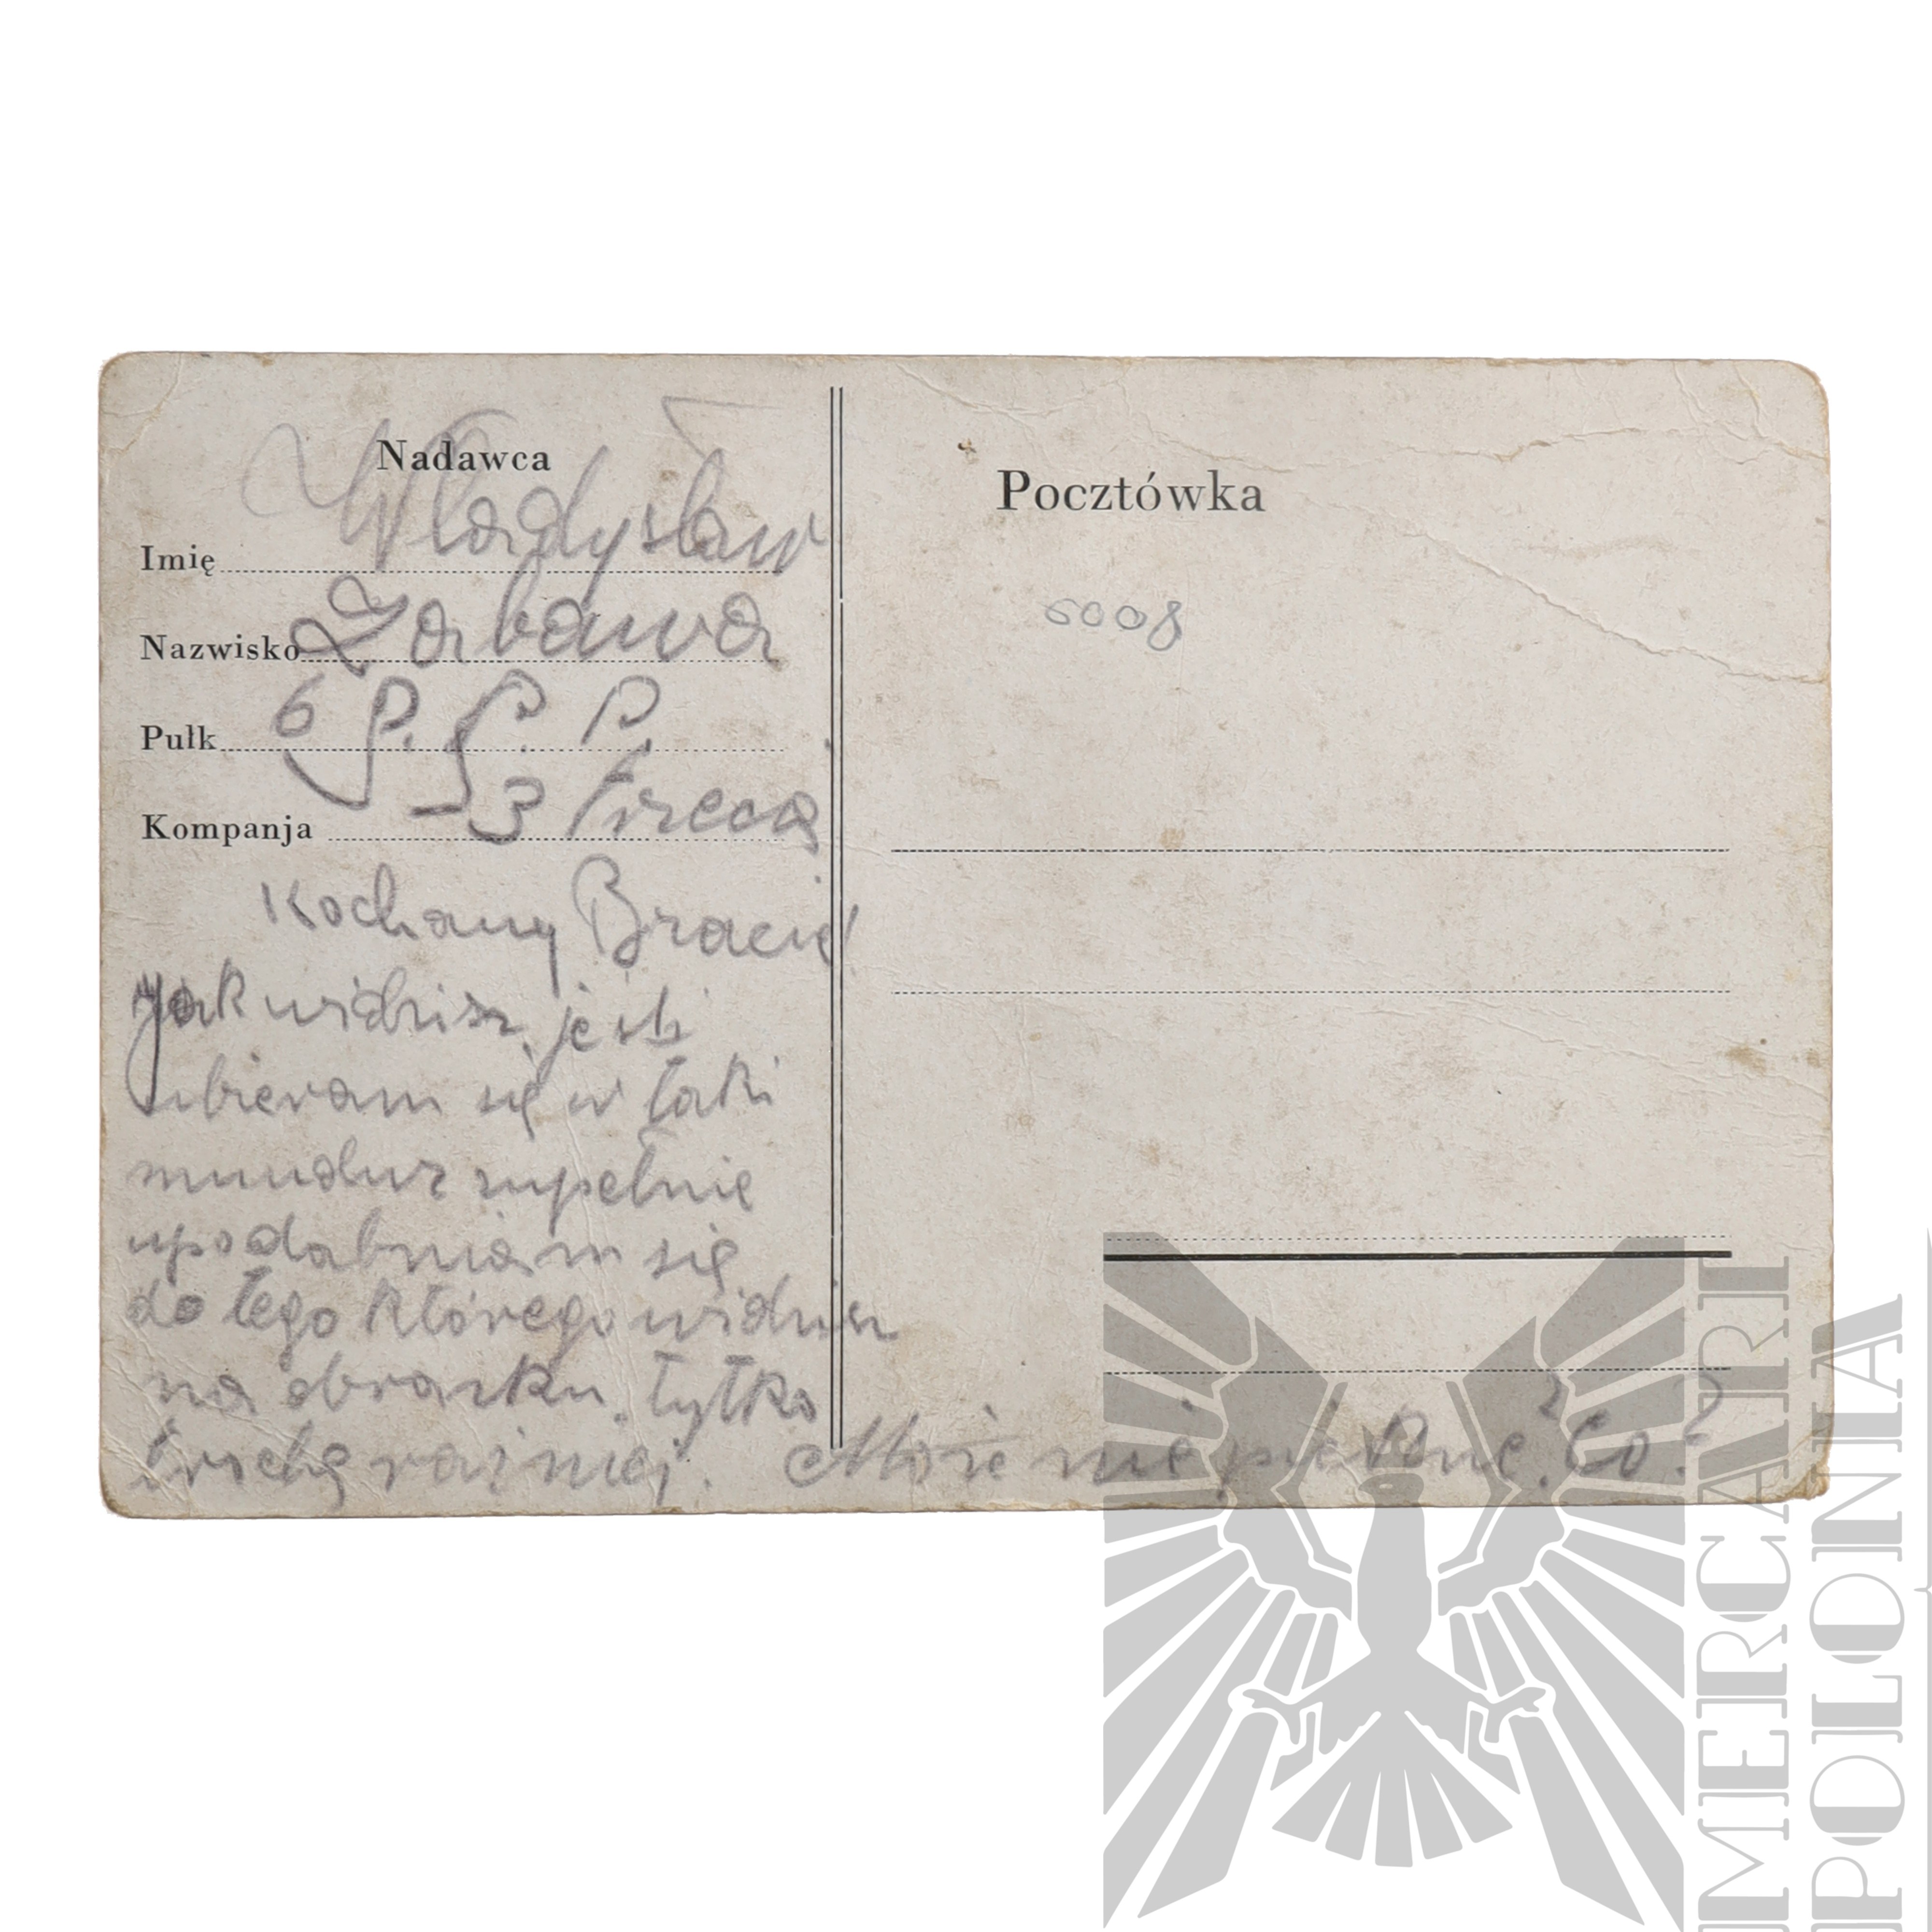 Nadawca
Imię Władysław
Nazwisko Zabawa
Pułk 6 P. P. P.
Kompanja 3 trzecia
Kochany Bracie!
Jak widzisz, jeśli
ubieram się w taki
mundur zupełnie
upodabniam się
do tego którego widzisz
na obrazku, tylko
trochę raźniej. Może nie pięknie? Co?
Pocztówka
6008
MERCARI
POLONIA